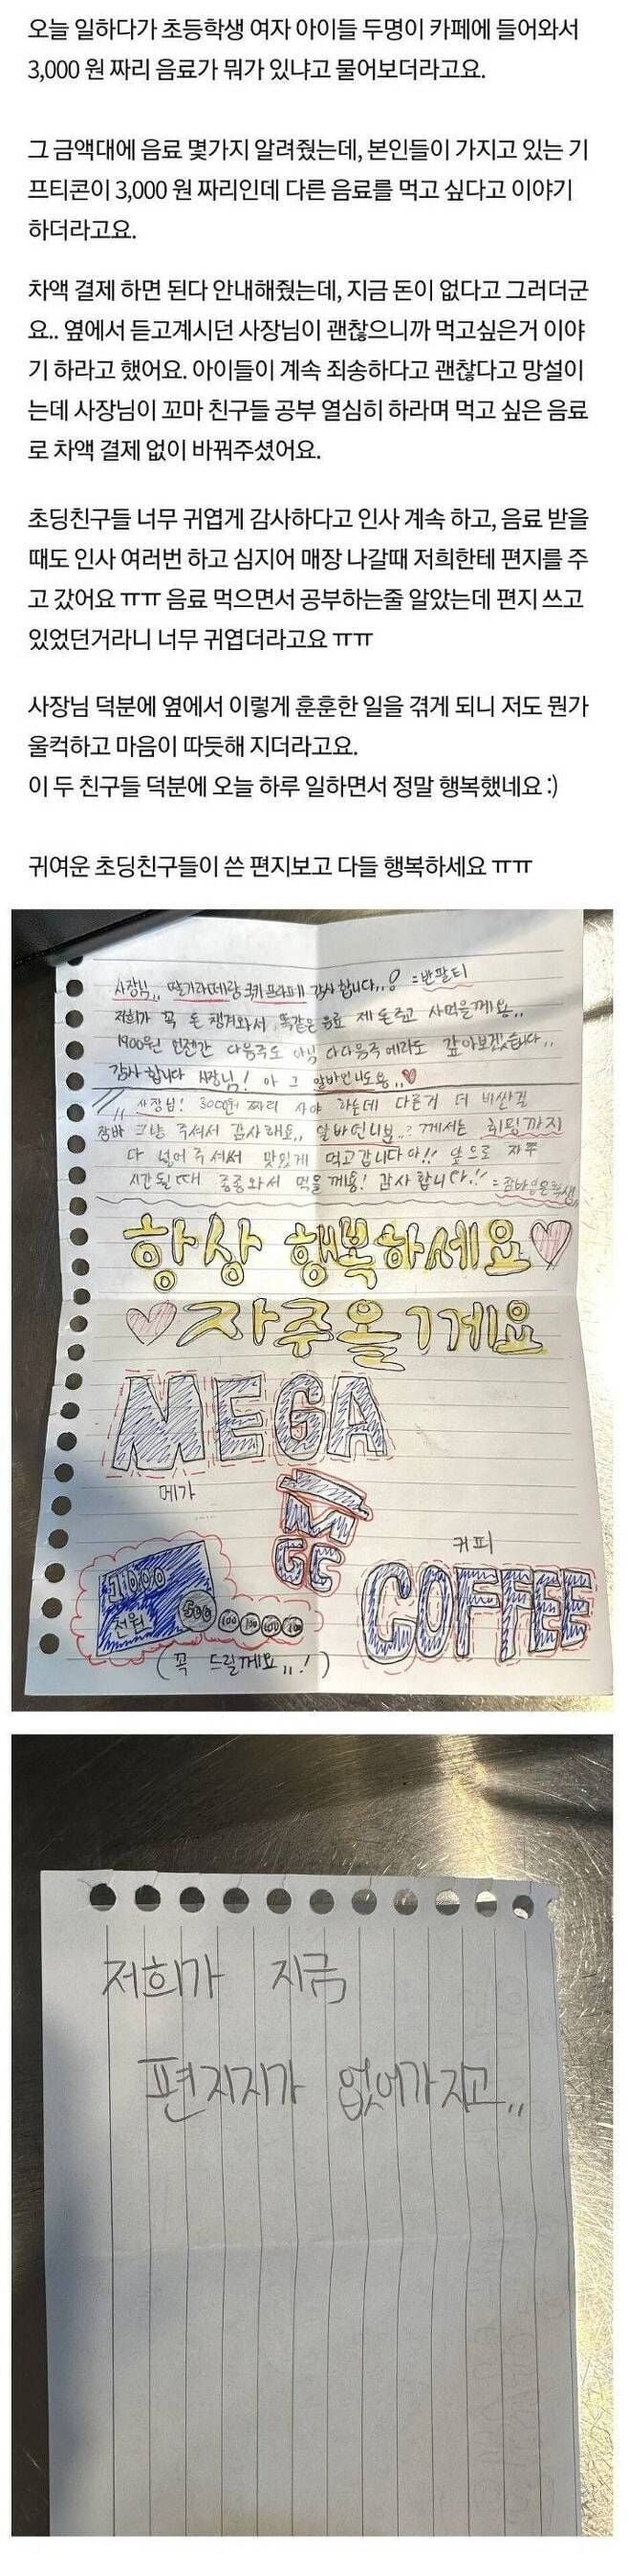 오늘 일하다가 초등학생 여자 아이들 두명이 카페에 들어와서
3,000 원 짜리 음료가 뭐가 있냐고 물어보더라고요.
그 금액대에 음료 몇가지 알려줬는데, 본인들이 가지고 있는 기
프티콘이 3,000 원 짜리인데 다른 음료를 먹고 싶다고 이야기
하더라고요.
차액 결제 하면 된다 안내해줬는데, 지금 돈이 없다고 그러더군
요.. 옆에서 듣고계시던 사장님이 괜찮으니까 먹고싶은거 이야
기 하라고 했어요. 아이들이 계속 죄송하다고 괜찮다고 망설이
는데 사장님이 꼬마 친구들 공부 열심히 하라며 먹고 싶은 음료
로 차액 결제 없이 바꿔주셨어요.
초딩친구들 너무 귀엽게 감사하다고 인사 계속 하고, 음료 받을
때도 인사 여러번 하고 심지어 매장 나갈때 저희한테 편지를 주
고 갔어요 ㅠㅠ 음료 먹으면서 공부하는줄 알았는데 편지 쓰고
있었던거라니 너무 귀엽더라고요 ㅠㅠ
사장님 덕분에 옆에서 이렇게 훈훈한 일을 겪게 되니 저도 뭔가
울컥하고 마음이 따듯해 지더라고요.
이 두 친구들 덕분에 오늘 하루 일하면서 정말 행복했네요 :)
귀여운 초딩친구들이 쓴 편지보고 다들 행복하세요 ㅠㅠ
사장님,, 딸기라떼랑 쿠키프라페 감사합니다..! =반팔티
저희가 꼭 돈 챙겨와서 똑같은 음료 제돈주고 사먹을께요..
1900원 언젠간 다음주도 아님 다다음주에라도 갚아보겠습니다..
감사합니다 사장님! 아 그 알바언니도용,,♥
사장님! 3000원 짜리 사야 하는데 다른거 더 비싼걸
그냥 주셔서 감사해요,, 알바언니분..? 께서는 휘핑까지
다 넣어주셔서 맛있게 먹고갑니다아!! 앞으로 자주
시간될때 종종와서 먹을께용! 감사합니다!!
항상 행복하세요♡
♡자주올게요
MEGA
메가
M
GC
커피
COFFEE
1000
천원
500 100 100 100 100
(꼭 드릴께요,,!)
저희가 지금
편지지가 없어가지고,,